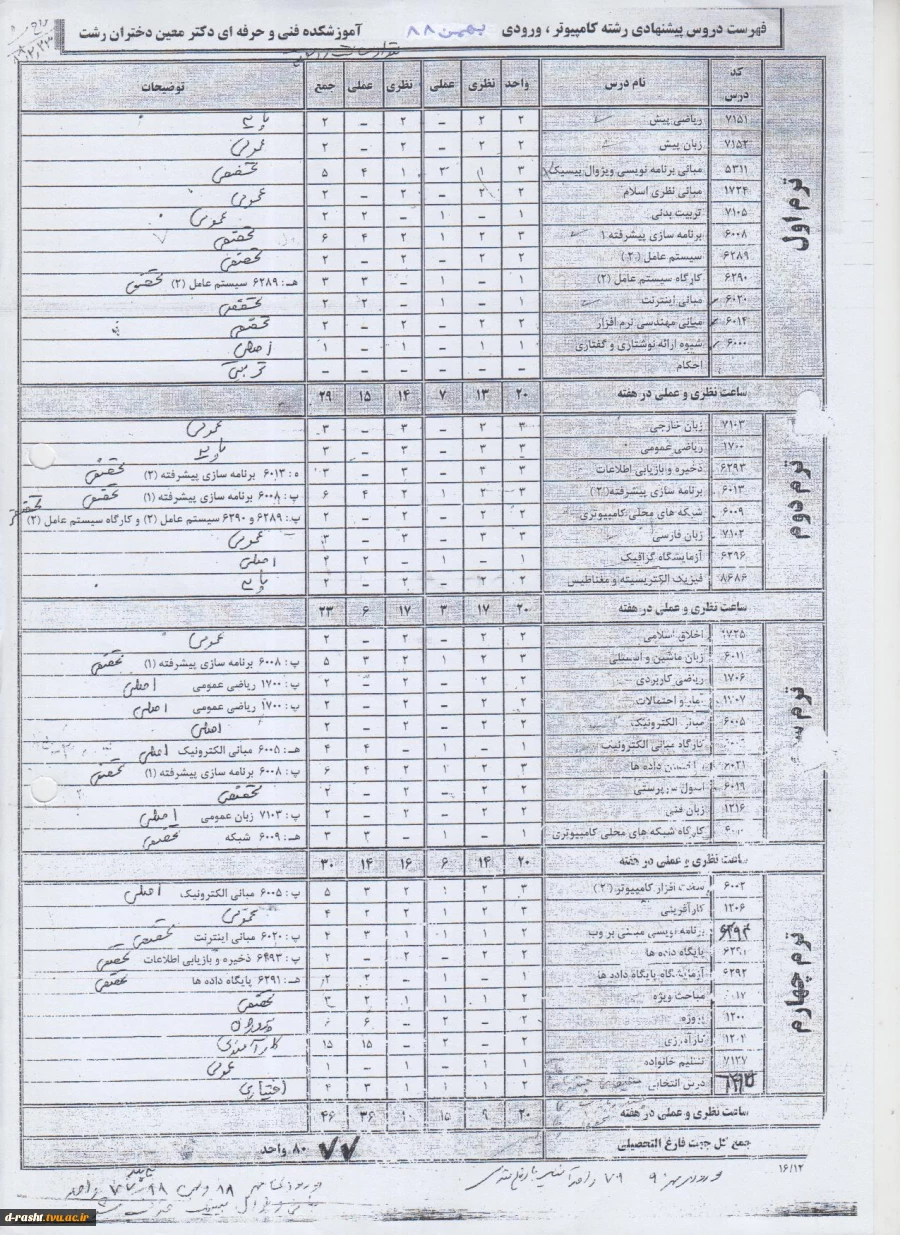 فهرست دروس پیشنهادی رشته کامپیوتر ، ورودی بهمن ۸۸ آموزشکده فنی و حرفه ای دکتر معین دختران رشت
کد درس نام درس واحد نظری عملی نظری عملی جمع توضیحات
ترم اول
۷۱۵۱ ریاضی پیش ۲ ۲ – ۲ – ۲ پایه
۷۱۵۲ زبان پیش ۲ ۲ – ۲ – ۲ عمومی
۵۳۱۱ مبانی برنامه نویسی ویژوال بیسیک ۳ ۱ ۴ ۵ تخصصی
۱۷۲۴ مبانی نظری اسلام ۲ ۲ – ۲ – ۲ عمومی
۷۱۰۵ تربیت بدنی ۱ – ۱ – ۲ ۲ عمومی
۶۰۰۸ برنامه سازی پیشرفته ۱ ۳ ۲ ۱ ۲ ۴ ۶ تخصصی
۶۲۸۹ سیستم عامل (۲) ۲ ۲ – ۲ – ۲ تخصصی
۶۲۹۰ کارگاه سیستم عامل (۲) ۱ – ۱ – ۳ ۳ هـ: ۶۲۸۹ سیستم عامل (۲) تخصصی
۶۰۲۰ مبانی اینترنت ۱ – ۱ – ۲ ۲ تخصصی
۶۰۱۴ مبانی مهندسی نرم افزار ۲ ۲ – ۲ – ۲ تخصصی
۶۰۰۰ شیوه ارائه نوشتاری و گفتاری ۱ ۱ – ۱ – ۱ اصلی
احکام – – – – – –
ساعت نظری و عملی در هفته ۲۰ ۱۳ ۷ ۱۴ ۱۵ ۲۹
ترم دوم
۷۱۰۳ زبان خارجی ۳ ۲ – ۳ – ۳ عمومی
۱۷۰۰ ریاضی عمومی ۳ ۳ – ۳ – ۳ پایه
۶۲۹۳ ذخیره و بازیابی اطلاعات ۳ ۳ – ۳ – ۳ ه: ۶۰۱۳ برنامه سازی پیشرفته (۲) تخصصی
۶۰۱۳ برنامه سازی پیشرفته (۲) ۳ ۲ ۱ ۲ ۴ ۶ پ: ۶۰۰۸ برنامه سازی پیشرفته (۱) تخصصی
۶۰۰۹ شبکه های محلی کامپیوتری ۲ ۲ – ۲ – ۲ پ: ۶۲۸۹ و ۶۲۹۰ سیستم عامل (۲) و کارگاه سیستم عامل (۲) تخصصی
۷۱۰۲ زبان فارسی ۳ ۳ – ۳ – ۳ عمومی
۶۲۹۶ آزمایشگاه گرافیک ۱ – ۱ – ۲ اصلی
۸۶۸۶ فیزیک الکتریسیته و مغناطیس ۲ ۲ – ۲ – ۲ پایه
ساعت نظری و عملی در هفته ۲۰ ۱۷ ۳ ۱۷ ۶ ۲۳
ترم
اخلاق اسلامی ۲ ۲ – ۲ – ۲ عمومی
۶۰۱۱ زبان ماشین و اسمبلی ۳ ۲ ۱ ۲ ۳ ۵ پ: ۶۰۰۸ برنامه سازی پیشرفته (۱) تخصصی
۱۷۰۶ ریاضی کاربردی ۲ ۲ – ۲ – ۲ پ: ۱۷۰۰ ریاضی عمومی اصلی
آمار و احتمالات ۲ ۲ – ۲ – ۲ پ: ۱۷۰۰ ریاضی عمومی اصلی
۶۰۰۵ مبانی الکترونیک ۲ ۲ – ۲ – ۲ اصلی
کارگاه مبانی الکترونیک ۱ – ۱ – ۴ ۴ هـ: ۶۰۰۵ مبانی الکترونیک اصلی
۶۰۲۱ داده ها ۳ ۲ ۱ ۲ ۴ ۶ پ: ۶۰۰۸ برنامه سازی پیشرفته (۱) تخصصی
۶۰۱۹ اصول سرپرستی ۲ ۲ – ۲ – ۲ تخصصی
۱۲۱۶ زبان فنی ۲ ۲ – ۲ – ۲ پ: ۷۱۰۳ زبان عمومی اصلی
کارگاه شبکه های محلی کامپیوتری ۱ – ۱ – ۳ ۳ هـ: ۶۰۰۹ شبکه تخصصی
ساعت نظری و عملی در هفته ۲۰ ۱۴ ۶ ۱۶ ۱۴ ۳۰
ترم چهارم
۶۰۰۲ سخت افزار کامپیوتر (۲) ۳ ۲ ۱ ۲ ۳ ۵ پ: ۶۰۰۵ مبانی الکترونیک اصلی
۱۲۰۶ کارآفرینی ۳ ۲ ۱ ۲ ۲ ۴ عمومی
برنامه نویسی مبتنی بر وب ۲ ۱ ۱ ۱ ۳ ۴ پ: ۶۰۲۰ مبانی اینترنت تخصصی
پایگاه داده ها ۲ ۲ – ۲ – ۲ پ: ۶۴۹۳ ذخیره و بازیابی اطلاعات تخصصی
۶۲۹۲ آزمایشگاه پایگاه داده ها ۱ – ۱ – ۲ ۲ هـ: ۶۲۹۱ پایگاه داده ها تخصصی
مباحث ویژه ۲ ۱ ۱ ۱ ۲ ۳ تخصصی
۱۲۰۰ پروژه ۲ – ۲ – ۶
۱۲۰۴ کارآموزی ۲ – ۲ – ۱۵ ۱۵ کارآموزی
۷۱۲۷ تنظیم خانواده ۱ ۱ – ۱ – ۱ عمومی
درس انتخابی ۲ ۱ ۱ ۱ ۳ ۴ اختیاری
ساعت نظری و عملی در هفته ۲۰ ۹ ۱۵ ۱۰ ۳۶ ۴۶
جمع کل جهت فارغ التحصیلی ۸۰ واحد ۷۷
۱۶/۱۲
d-rasht.tvu.ac.ir